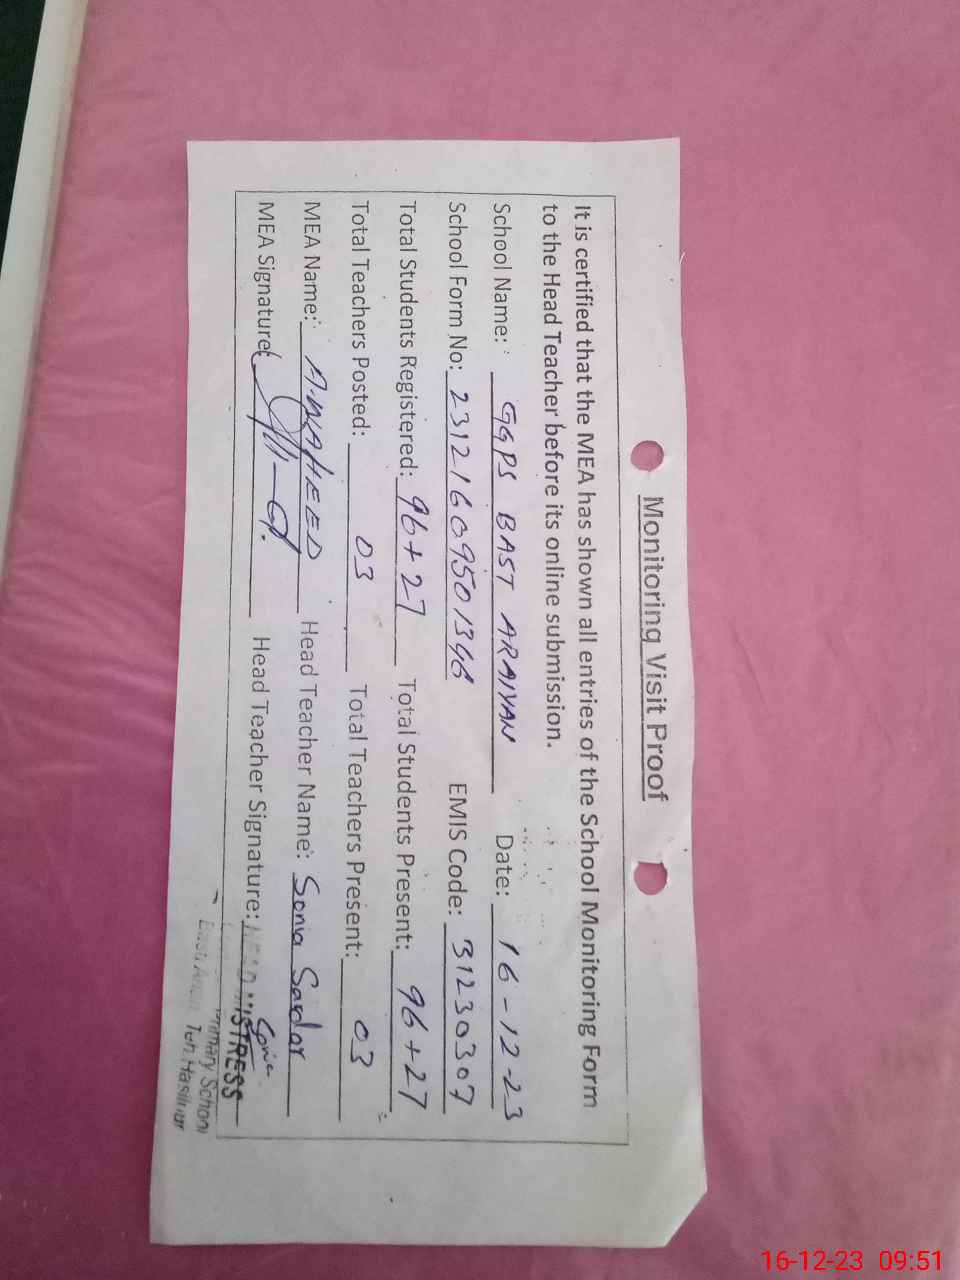 Monitoring Visit Proof
It is certified that the MEA has shown all entries of the School Monitoring Form
to the Head Teacher before its online submission.
School Name: GGPS BAST ARAIYAN Date: 16-12-23
School Form No: 23121609501346 EMIS Code: 31230307
Total Students Registered: 96+27 Total Students Present: 96+27
Total Teachers Posted: 03 Total Teachers Present: 03
MEA Name: A.WAHEED Head Teacher Name: Sonia Sardar
MEA Signature: Head Teacher Signature: Sonia
HEAD MISTRESS
Primary School
Teh.Hasilpur
16-12-23 09:51